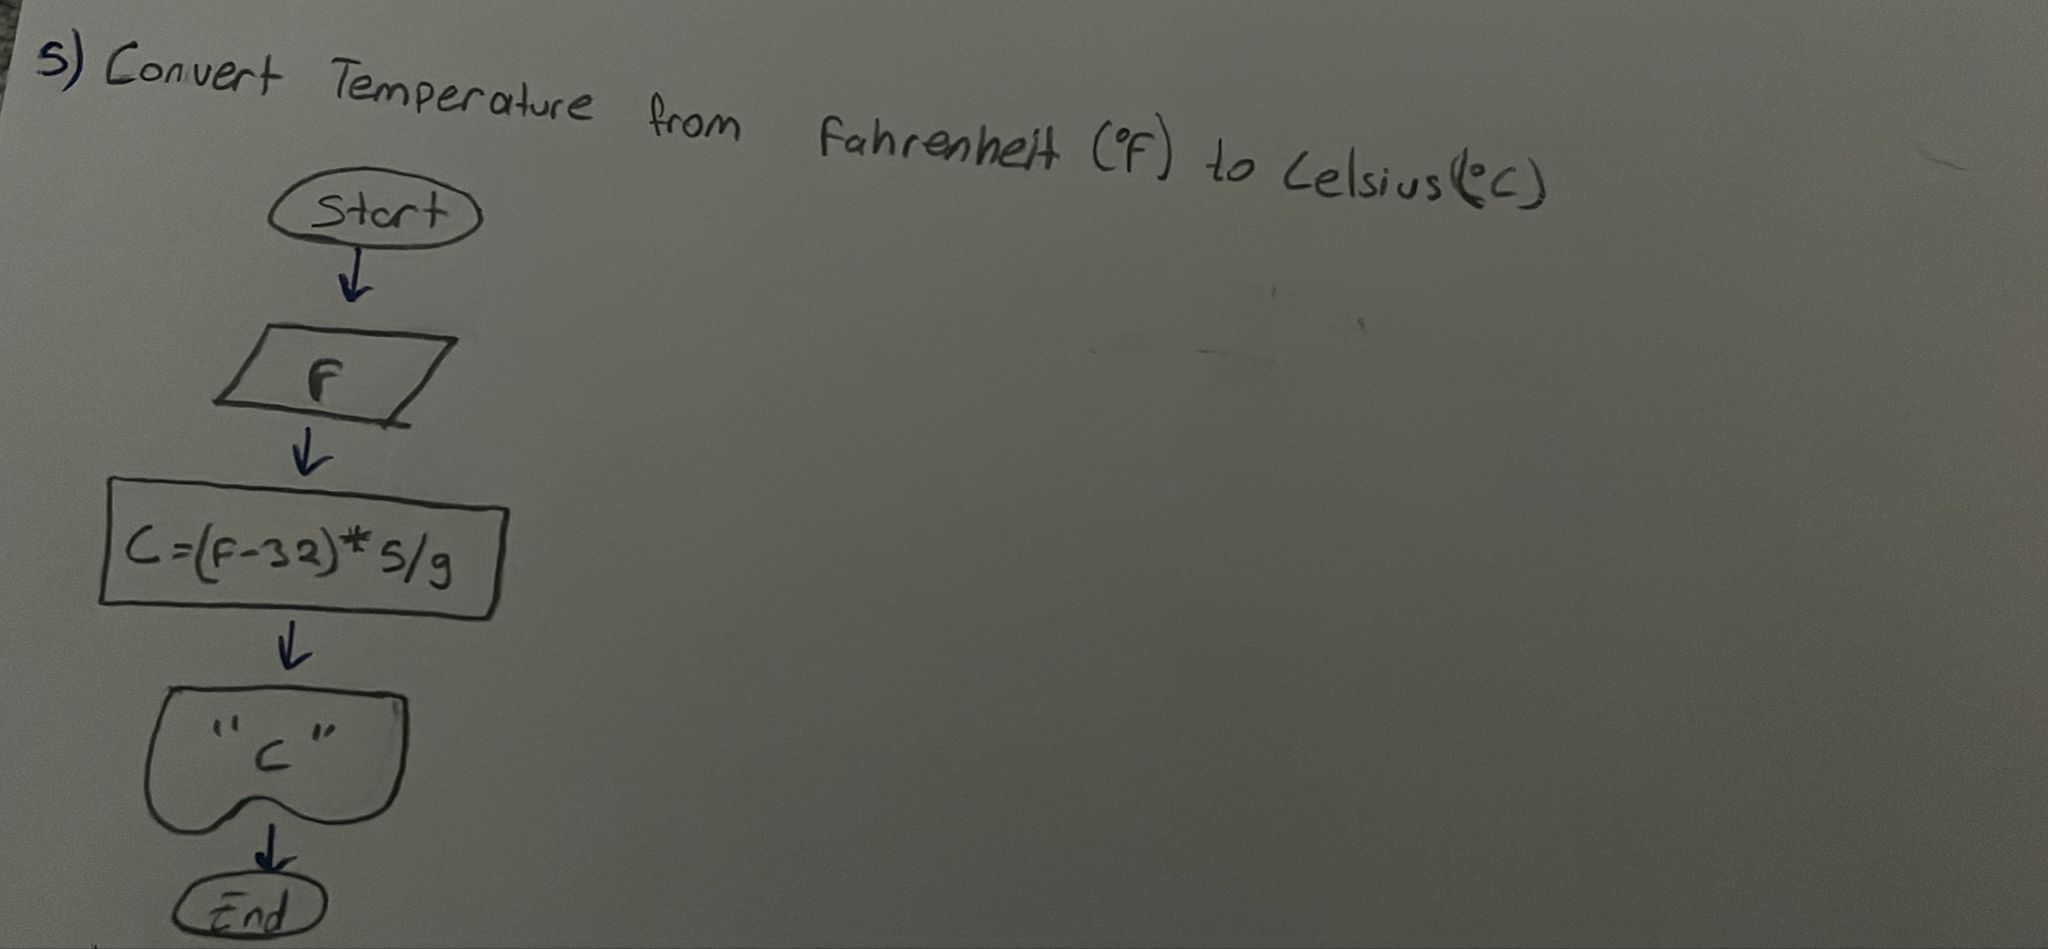 5) Convert Temperature from Fahrenheit (°F) to Celsius (°C)
Start
F
C=(F-32)*5/9
"C"
End